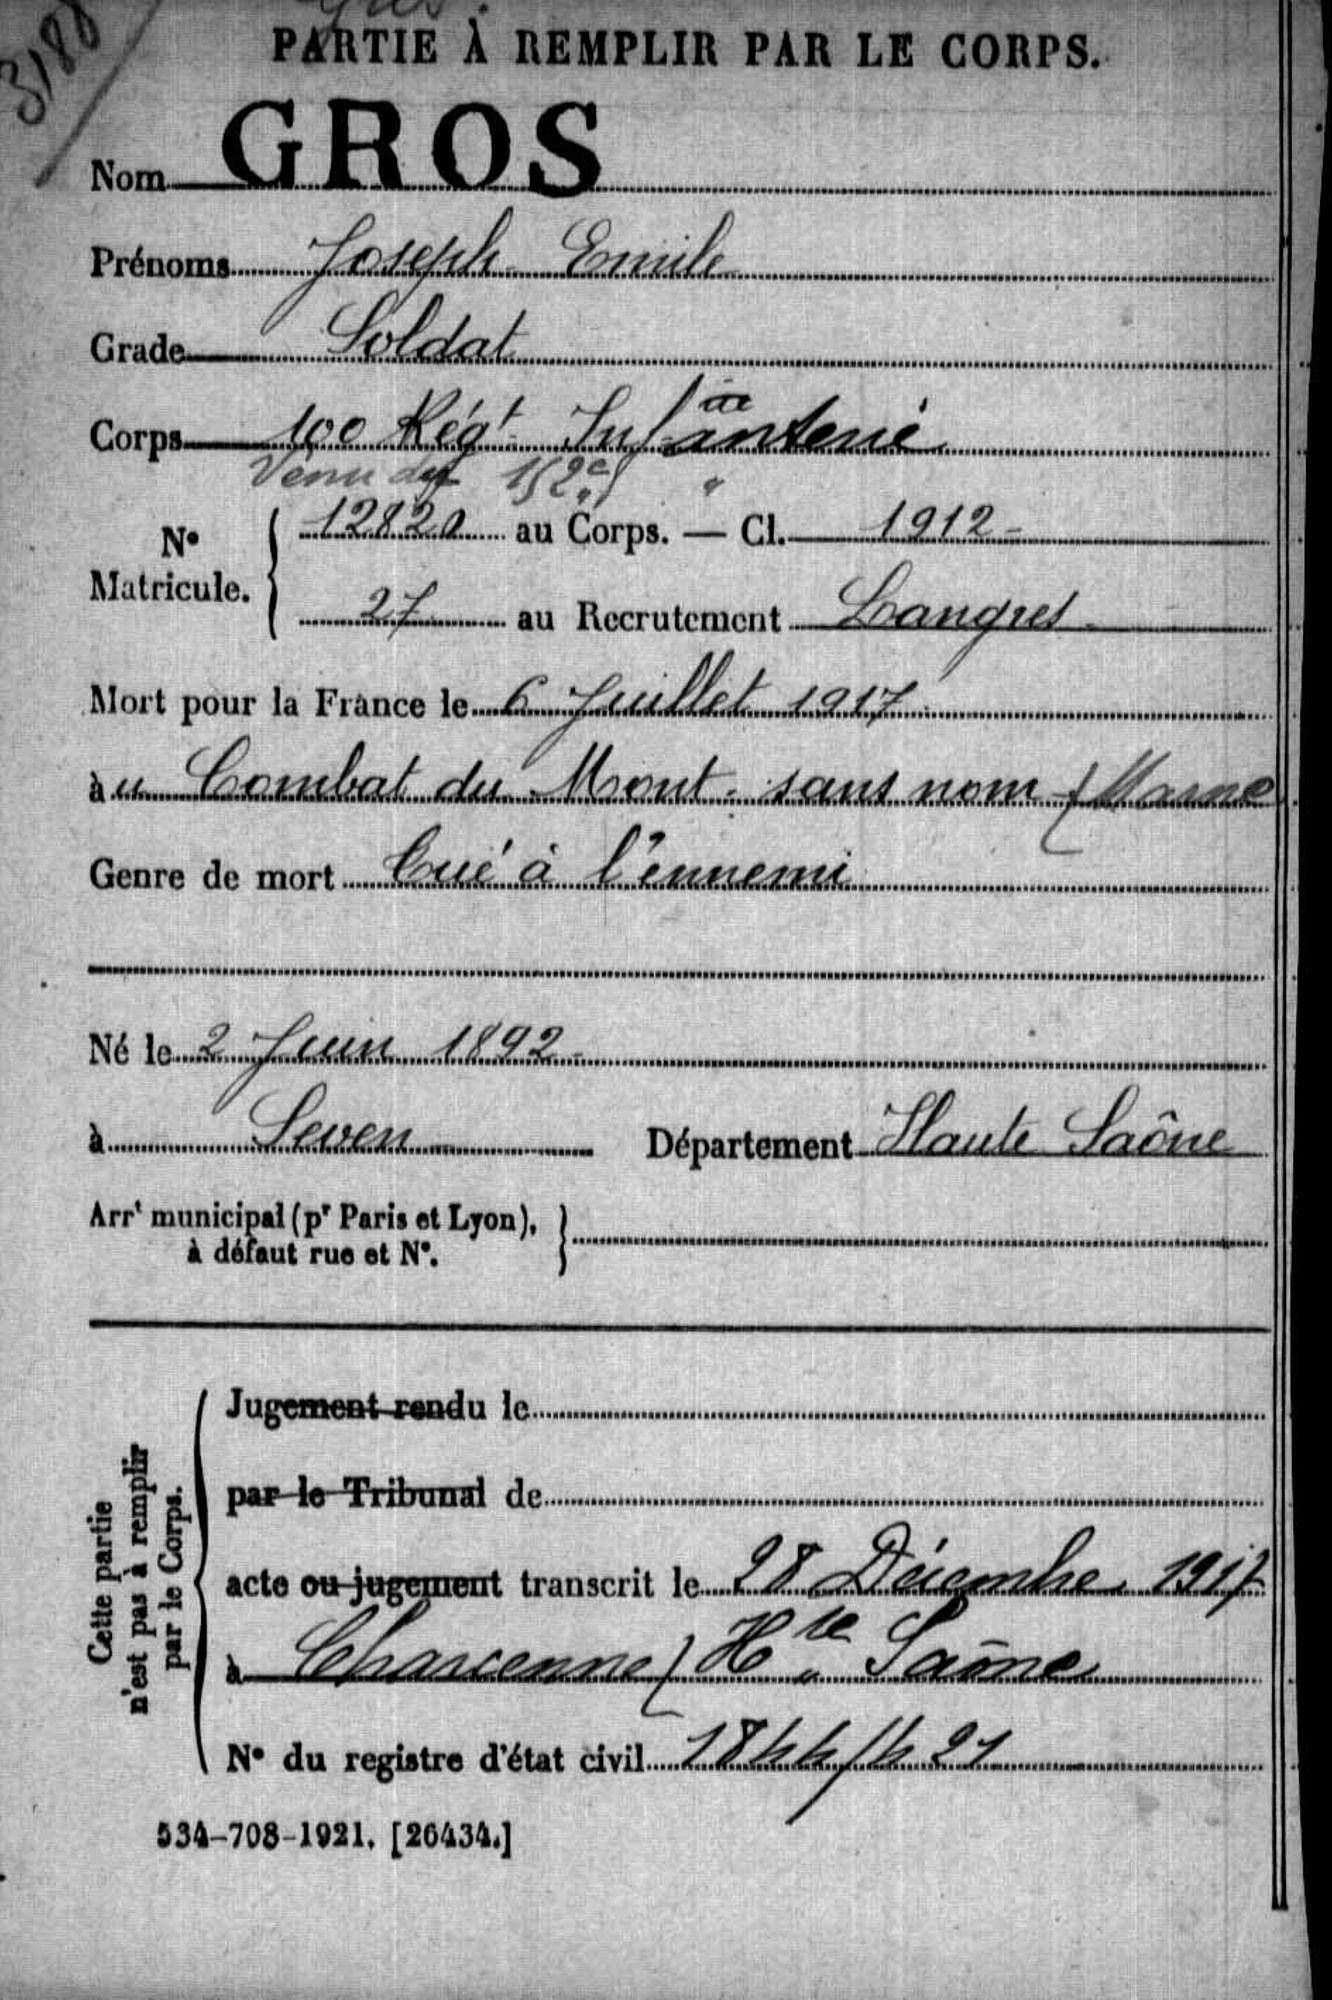 PARTIE À REMPLIR PAR LE CORPS.
Nom GROS
Prénoms Joseph Emile
Grade Soldat
Corps 100 Régt Infanterie
Venu du 152e "
12820 au Corps. — Cl. 1912
No Matricule.
27 au Recrutement Langres
Mort pour la France le 6 Juillet 1917
au Combat du Mont sans nom (Marne
Genre de mort Tué à l'ennemi
Né le 2 Juin 1892
à Seven Département Haute Saône
Arrt municipal (pr Paris et Lyon),
à défaut rue et No.
Jugement rendu le
par le Tribunal de
acte ou jugement transcrit le 28 Décembre 1917
à Charcenne (Hte Saône
No du registre d'état civil 1844/421
Cette partie
n'est pas à remplir
par le Corps.
534-708-1921. [26434.]